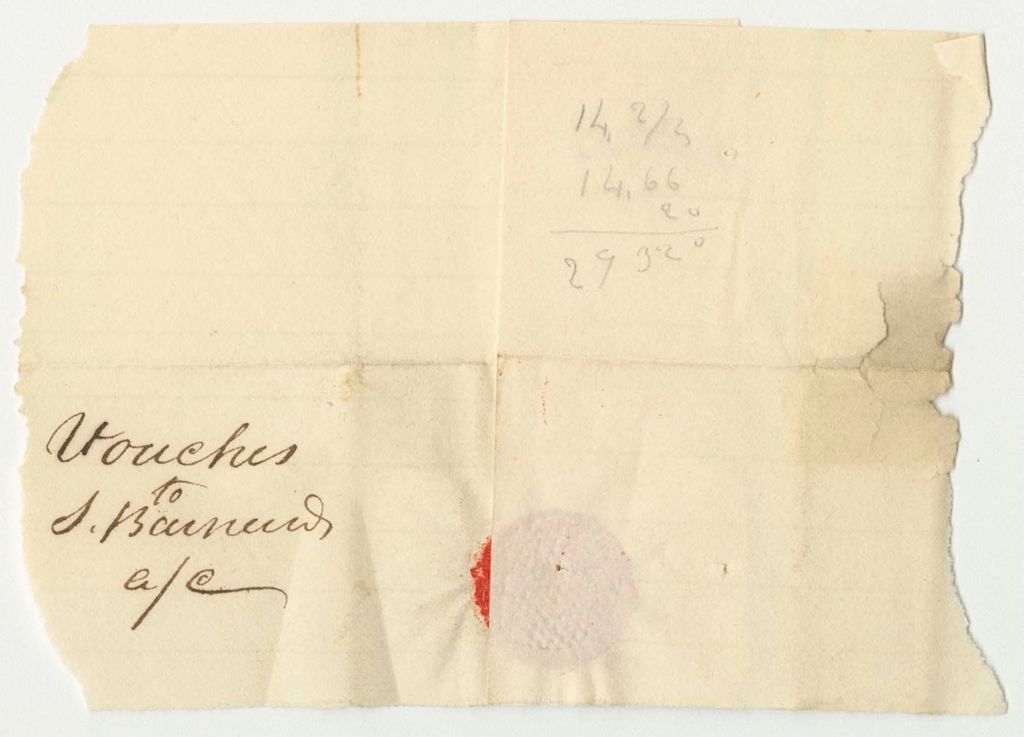 14, 2/3
14,66
20
29320
Vouches
to
S. Barnards
a/c